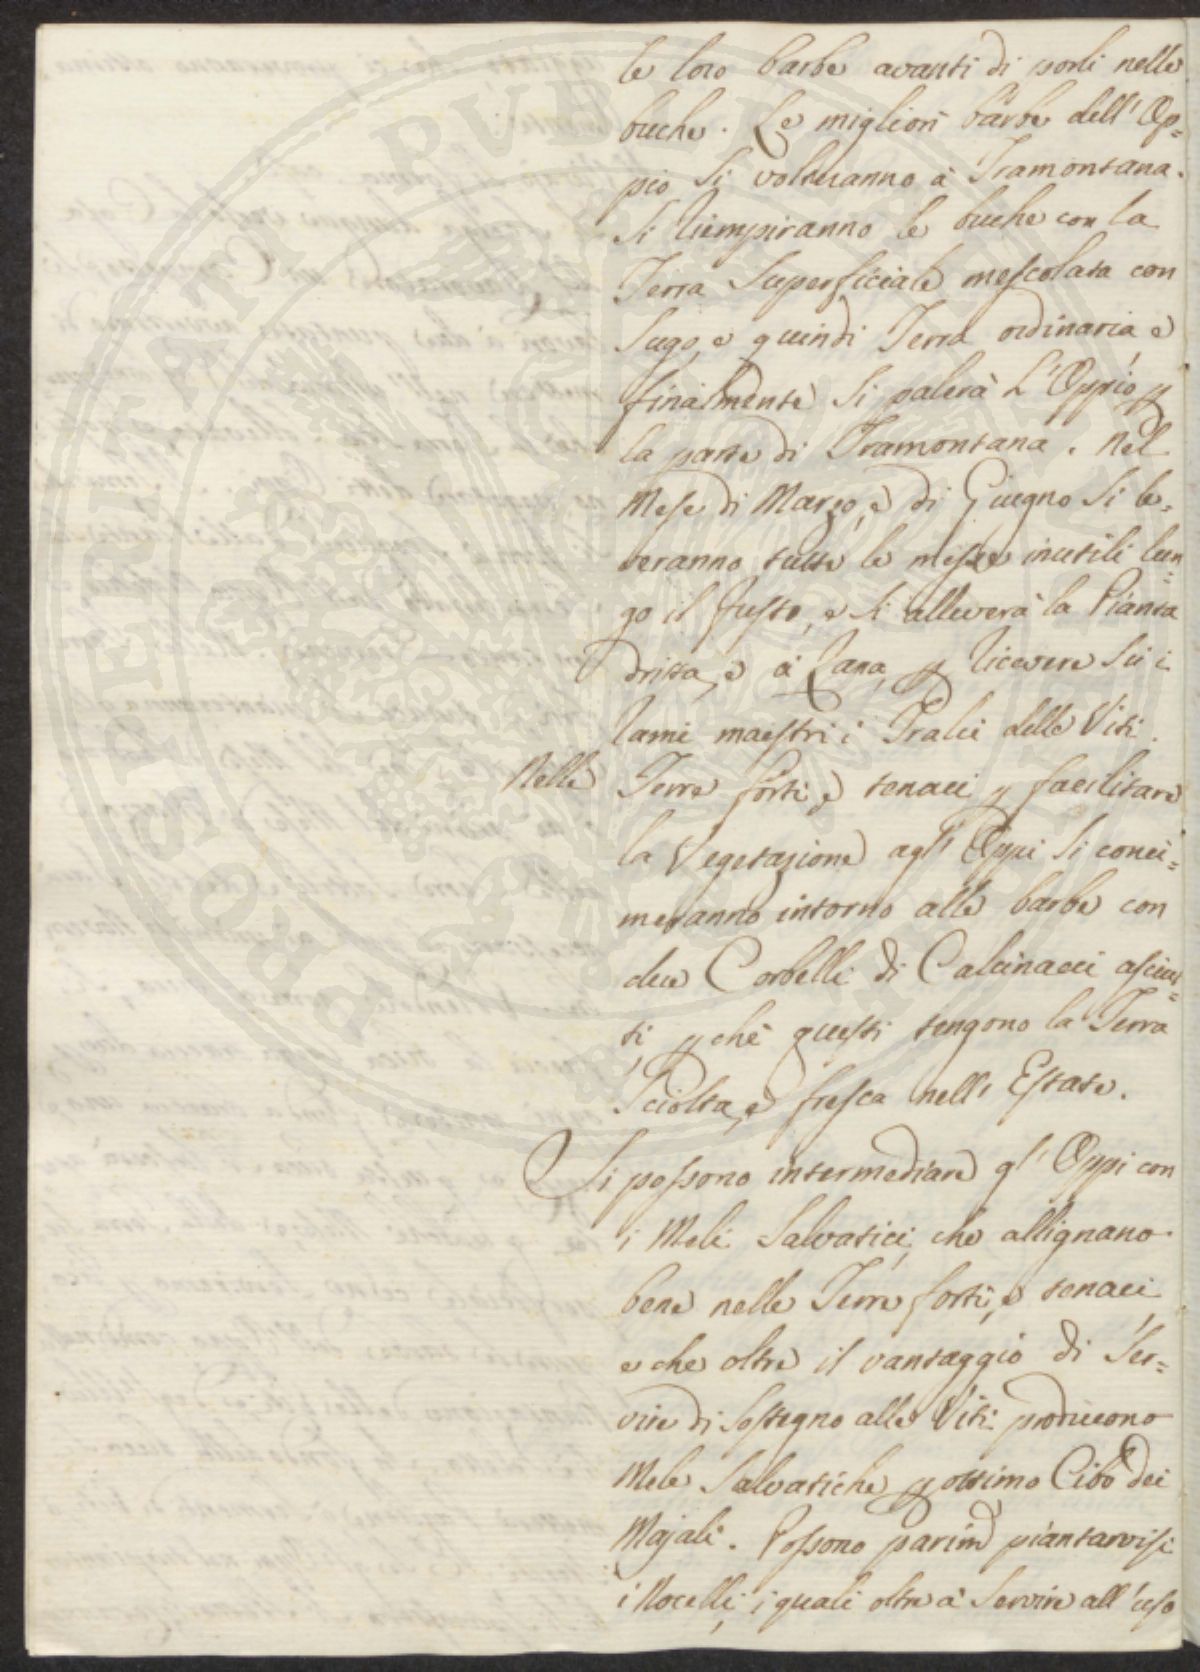 le loro barbe avanti di porli nelle
buche. Le migliori barbe dell' Op=
pio si volteranno à Tramontana.
Si riempiranno le buche con la
Terra Superficiale mescolata con
Sugo, e quindi Terra ordinaria e
finalmente si palerà L'Oppio p
la parte di Tramontana. Nel
Mese di Marzo, e di Giugno Si le=
veranno tutte le messe inutili lun=
go il fusto, e si alleverà la Pianta
dritta, e à Lana, p ricevere Sù i
rami maestri i Tralci delle Viti.
Nelle Terre forti, e tenaci p facilitare
la Vegetazione agl' Oppi Si conci=
meranno intorno alle barbe con
due Corbelli di Calcinacci asciut=
ti, p chè questi tengono la Terra
Sciolta, e fresca nell' Estate.
Si possono intermediare gl' Oppi con
i Meli Salvatici, che allignano
bene nelle Terre forti, e tenaci,
e che oltre il vantaggio di Ser=
vire di Sostegno alle Viti producono
Mele Salvatiche p ottimo Cibo dei
Majali. Possono parimd piantarvisi
i Nocelli, i quali oltre à Servire all' uso
PROSPERITATI PUBLICAE